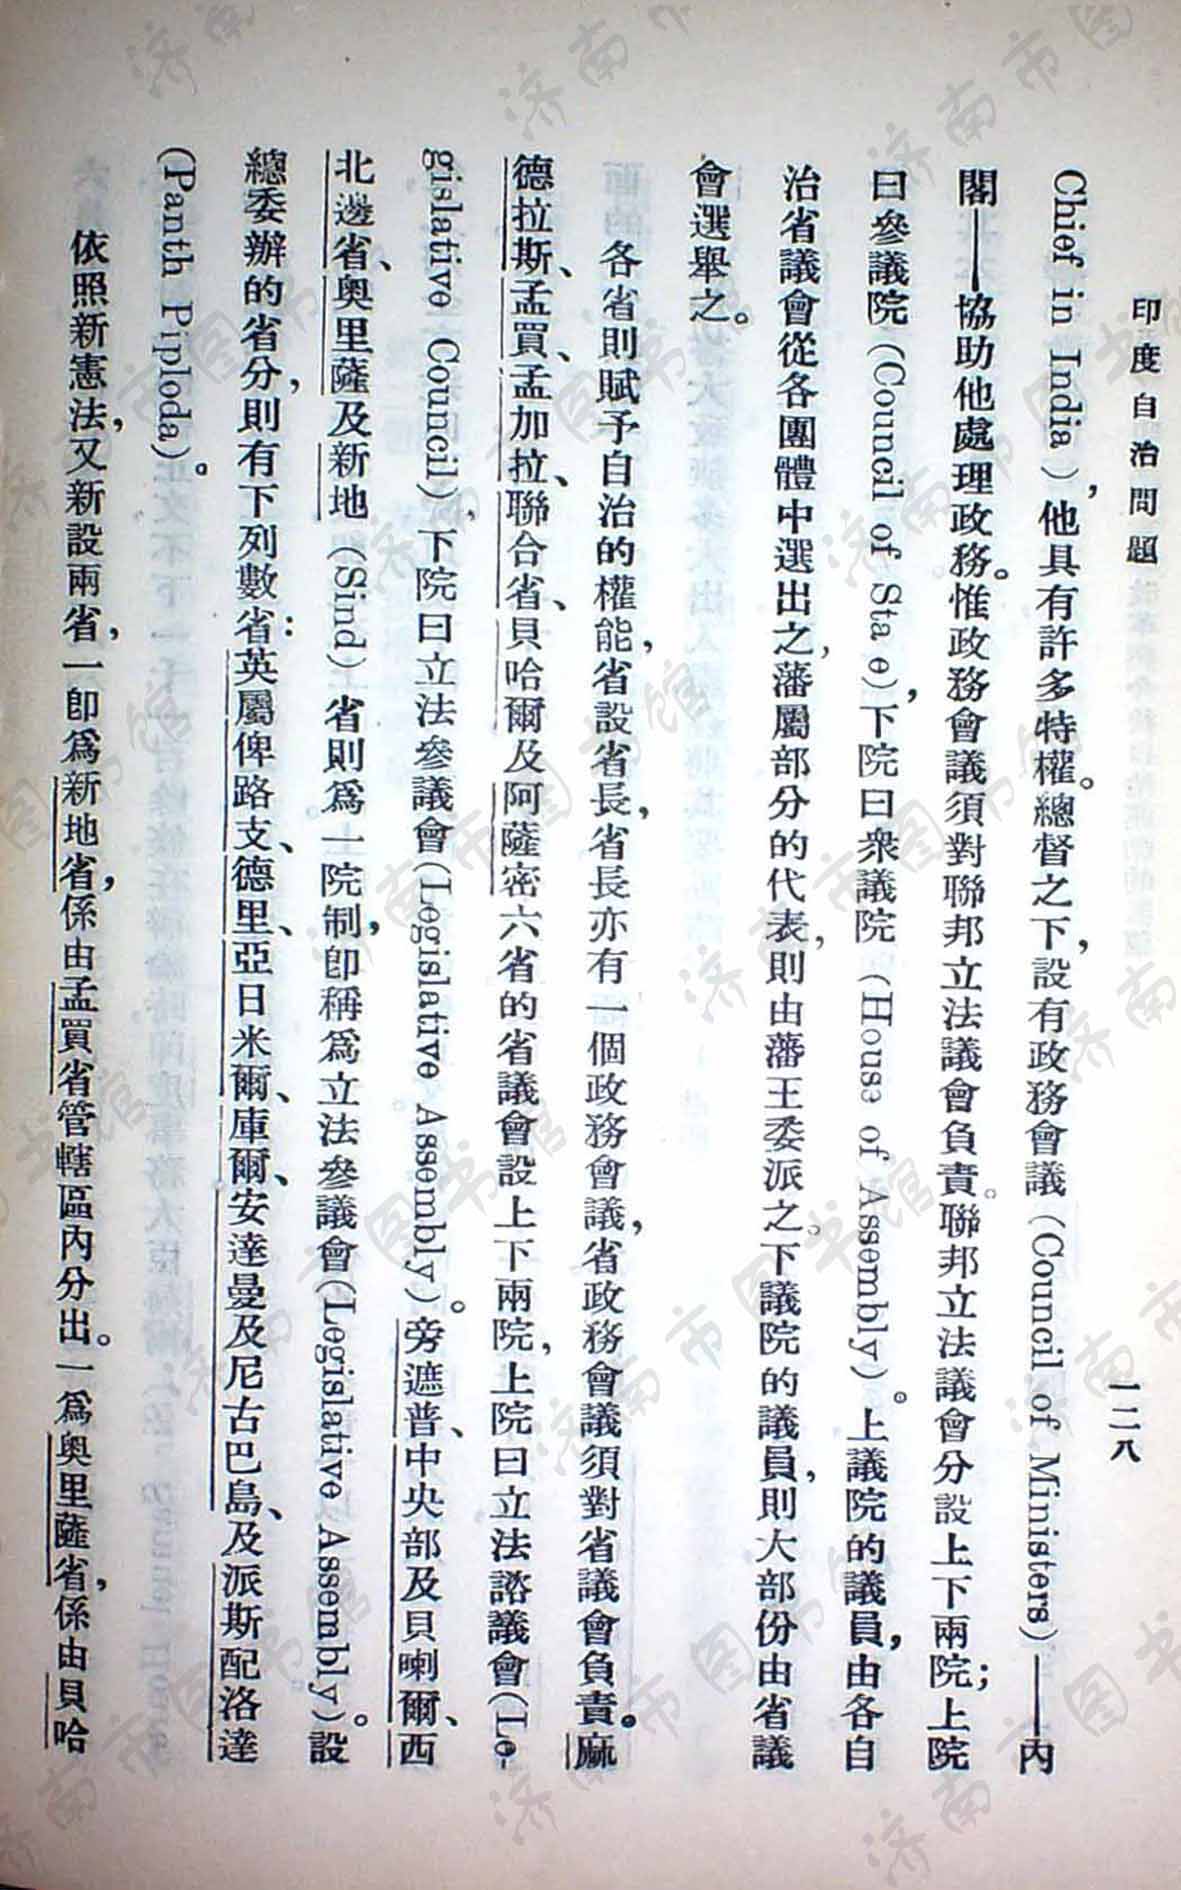 印度自治問題
一二八
Chief in India)，他具有許多特權。總督之下，設有政務會議(Council of Ministers)——內
閣——協助他處理政務。惟政務會議須對聯邦立法議會負責。聯邦立法議會分設上下兩院；上院
曰參議院(Council of Sta e)，下院曰衆議院(House of Assembly)。上議院的議員，由各自
治省議會從各團體中選出之，藩屬部分的代表，則由藩王委派之。下議院的議員，則大部份由省議
會選舉之。
各省則賦予自治的權能，省設省長，省長亦有一個政務會議，省政務會議須對省議會負責。麻
德拉斯、孟買、孟加拉、聯合省、貝哈爾及阿薩密六省的省議會設上下兩院，上院曰立法諮議會(Le-
gislative Council)，下院曰立法參議會(Legislative Assembly)。旁遮普、中央部及貝喇爾、西
北邊省、奧里薩及新地(Sind)省則爲一院制，卽稱爲立法參議會(Legislative Assembly)。設
總委辦的省分，則有下列數省：英屬俾路支、德里、亞日米爾、庫爾、安達曼及尼古巴島、及派斯配洛達
(Panth Piploda)。
依照新憲法，又新設兩省，一卽爲新地省，係由孟買省管轄區內分出。一爲奧里薩省，係由貝哈
济南市图书馆